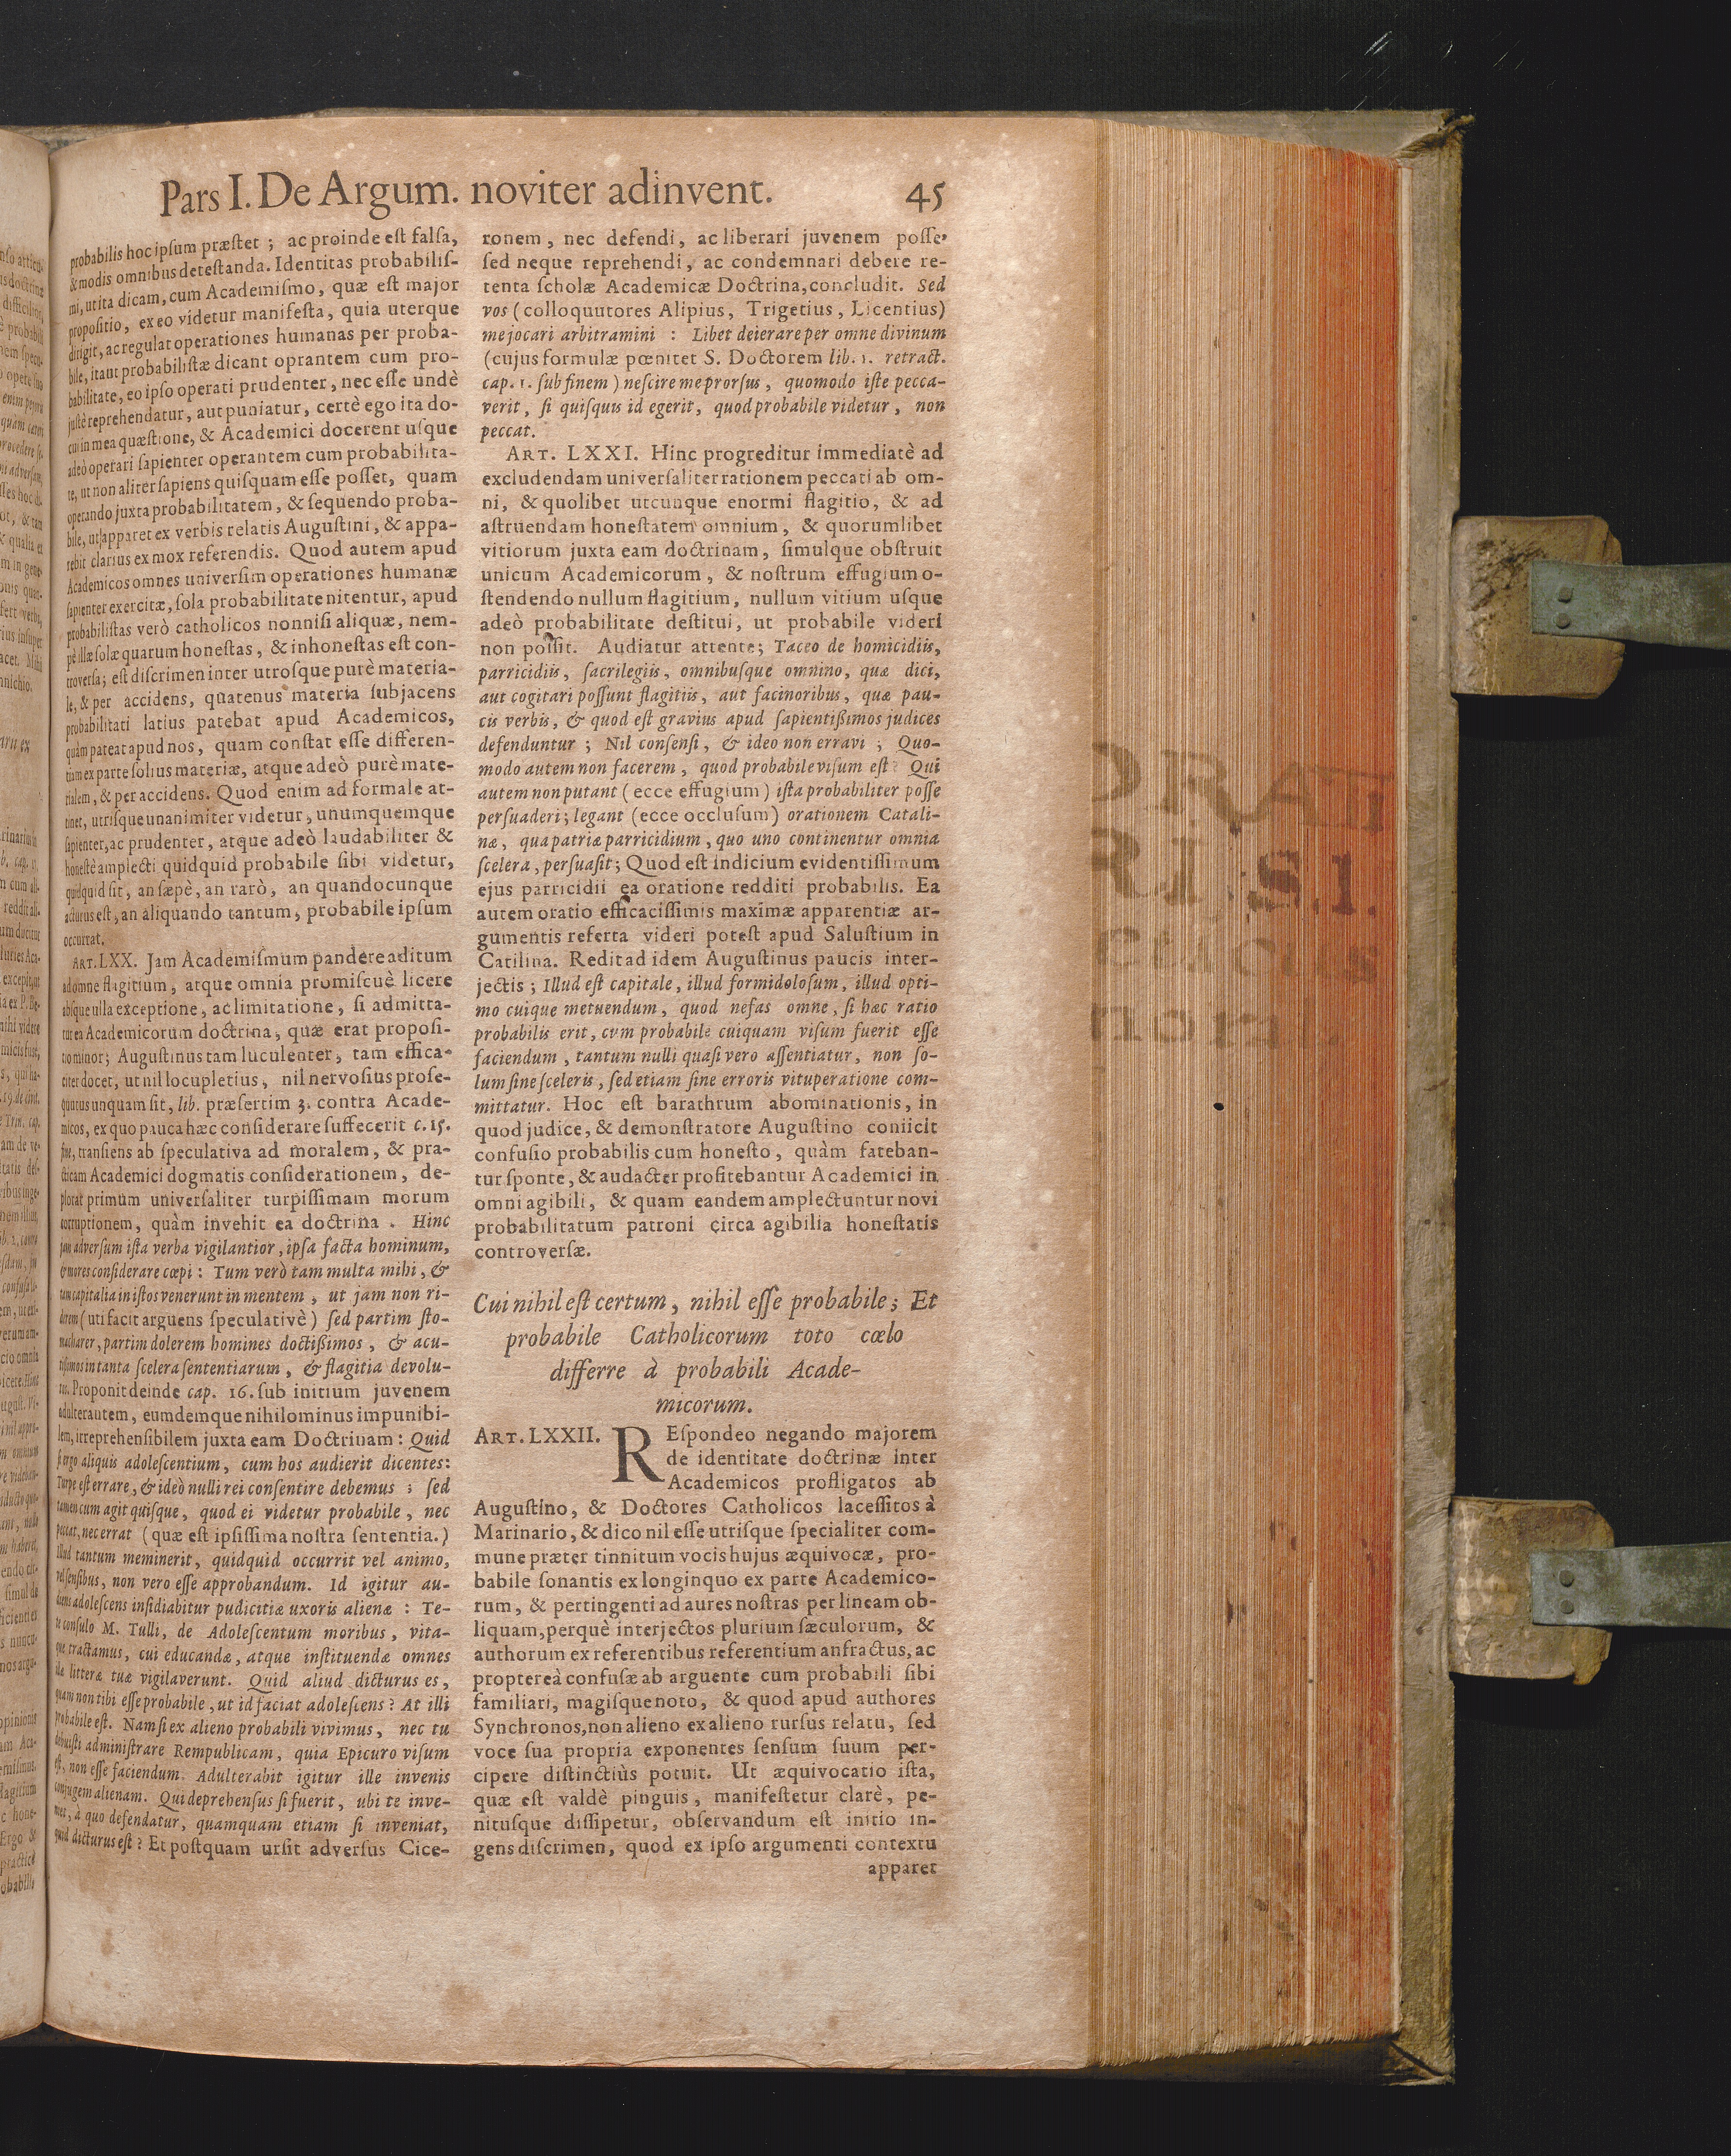 Pars I. De Argum. noviter adinvent. 45
probabilis hoc ipsum præstet ; ac proinde est falsa,
& modis omnibus detestanda. Identitas probabilis-
mi, ut ita dicam, cum Academismo, quæ est major
propositio, ex eo videtur manifesta, quia uterque
dirigit, ac regulat operationes humanas per proba-
bile, ita ut probabilistæ dicant oprantem cum pro-
babilitate, eo ipso operati prudenter, nec esse undè
justè reprehendatur, aut puniatur, certè ego ita do-
cui in mea quæstione, & Academici docerent usque
adeò operari sapienter operantem cum probabilita-
te, ut non aliter sapiens quisquam esse posset, quam
operando juxta probabilitatem, & sequendo proba-
bile, ut apparet ex verbis relatis Augustini, & appa-
rebit clarius ex mox referendis. Quod autem apud
Academicos omnes universim operationes humanæ
sapienter exercitæ, sola probabilitate nitentur, apud
probabilistas verò catholicos nonnisi aliquæ, nem-
pè illæ solæ quarum honestas, & inhonestas est con-
troversa; est discrimen inter utrosque purè materia-
le, & per accidens, quatenus materia subjacens
probabilitati latius patebat apud Academicos,
quàm pateat apud nos, quam constat esse differen-
tiam ex parte solius materiæ, atque adeò purè mate-
rialem, & per accidens. Quod enim ad formale at-
tinet, utrisque unanimiter videtur, unumquemque
sapienter, ac prudenter, atque adeò laudabiliter &
honestè amplecti quidquid probabile sibi videtur,
quidquid sit, an sæpè, an rarò, an quandocunque
acturus est, an aliquando tantum, probabile ipsum
occurrat.
ART. LXX. Jam Academismum pandere aditum
ad omne flagitium, atque omnia promiscuè licere
absque ulla exceptione, ac limitatione, si admitta-
tur ea Academicorum doctrina, quæ erat proposi-
tio minor; Augustinus tam luculenter, tam effica-
citer docet, ut nil locupletius, nil nervosius profe-
quuturus unquam sit, lib. præsertim 3. contra Acade-
micos, ex quo pauca hæc considerare suffecerit c. 15.
fine, transiens ab speculativa ad moralem, & pra-
cticam Academici dogmatis considerationem, de-
plorat primum universaliter turpissimam morum
corruptionem, quàm invehit ea doctrina . Hinc
jam adversum ista verba vigilantior, ipsa facta hominum,
& mores considerare cœpi : Tum verò tam multa mihi, &
tam capitalia in istos venerunt in mentem, ut jam non ri-
derem (uti facit arguens speculativè) sed partim sto-
macharer, partim dolerem homines doctißimos, & acu-
tißimos in tanta scelera sententiarum, & flagitia devolu-
tos. Proponit deinde cap. 16. sub initium juvenem
adulterantem, eumdemque nihilominus impunibi-
lem, irreprehensibilem juxta eam Doctrinam : Quid
si ergo aliquis adolescentium, cum hos audierit dicentes:
Turpe est errare, & ideò nulli rei consentire debemus ; sed
tamen cum agit quisque, quod ei videtur probabile, nec
peccat, nec errat (quæ est ipsissima nostra sententia.)
Illud tantum meminerit, quidquid occurrit vel animo,
vel sensibus, non vero esse approbandum. Id igitur au-
diens adolescens insidiabitur pudicitiæ uxoris alienæ : Te-
te consulo M. Tulli, de Adolescentum moribus, vita-
que tractamus, cui educandæ, atque instituendæ omnes
illæ litteræ tuæ vigilaverunt. Quid aliud dicturus es,
quam non tibi esse probabile, ut id faciat adolescens ? At illi
probabile est. Nam si ex alieno probabili vivimus, nec tu
debuisti administrare Rempublicam, quia Epicuro visum
est, non esse faciendum. Adulterabit igitur ille invenis
conjugem alienam. Qui deprehensus si fuerit, ubi te inve-
niet, à quo defendatur, quamquam etiam si inveniat,
quid dicturus est ? Et postquam ursit adversus Cice-
ronem, nec defendi, ac liberari juvenem posse,
sed neque reprehendi, ac condemnari debere re-
tenta scholæ Academicæ Doctrina, concludit. Sed
vos (colloquutores Alipius, Trigetius, Licentius)
me jocari arbitramini : Libet deierare per omne divinum
(cujus formulæ pœnitet S. Doctorem lib. 1. retract.
cap. 1. sub finem) nescire me prorsus, quomodo iste pecca-
verit, si quisquis id egerit, quod probabile videtur, non
peccat.
ART. LXXI. Hinc progreditur immediatè ad
excludendam universaliter rationem peccati ab om-
ni, & quolibet utcunque enormi flagitio, & ad
astruendam honestatem omnium, & quorumlibet
vitiorum juxta eam doctrinam, simulque obstruit
unicum Academicorum, & nostrum effugium o-
stendendo nullum flagitium, nullum vitium usque
adeò probabilitate destitui, ut probabile videri
non possit. Audiatur attente; Taceo de homicidiis,
parricidiis, sacrilegiis, omnibusque omnino, quæ dici,
aut cogitari possunt flagitiis, aut facinoribus, quæ pau-
cis verbis, & quod est gravius apud sapientißimos judices
defenduntur ; Nil consensi, & ideo non erravi ; Quo-
modo autem non facerem, quod probabile visum est ? Qui
autem non putant (ecce effugium) ista probabiliter posse
persuaderi; legant (ecce occlusum) orationem Catali-
næ, qua patriæ parricidium, quo uno continentur omnia
scelera, persuasit; Quod est indicium evidentissimum
ejus parricidii ea oratione redditi probabilis. Ea
autem oratio efficacissimis maximæ apparentiæ ar-
gumentis referta videri potest apud Salustium in
Catilina. Redit ad idem Augustinus paucis inter-
jectis ; Illud est capitale, illud formidolosum, illud opti-
mo cuique metuendum, quod nefas omne, si hæc ratio
probabilis erit, cvm probabile cuiquam visum fuerit esse
faciendum, tantum nulli quasi vero assentiatur, non so-
lum sine sceleris, sed etiam sine erroris vituperatione com-
mittatur. Hoc est barathrum abominationis, in
quod judice, & demonstratore Augustino coniicit
confusio probabilis cum honesto, quàm fateban-
tur sponte, & audacter profitebantur Academici in
omni agibili, & quam eandem amplectuntur novi
probabilitatum patroni circa agibilia honestatis
controversæ.
Cui nihil est certum, nihil esse probabile; Et
probabile Catholicorum toto cœlo
differre à probabili Acade-
micorum.
ART. LXXII. REspondeo negando majorem
de identitate doctrinæ inter
Academicos profligatos ab
Augustino, & Doctores Catholicos lacessitos à
Marinario, & dico nil esse utrisque specialiter com-
mune præter tinnitum vocis hujus æquivocæ, pro-
babile sonantis ex longinquo ex parte Academico-
rum, & pertingenti ad aures nostras per lineam ob-
liquam, perquè interjectos plurium sæculorum, &
authorum ex referentibus referentium anfractus, ac
proptereà confusæ ab arguente cum probabili sibi
familiari, magisque noto, & quod apud authores
Synchronos, non alieno ex alieno rursus relatu, sed
voce sua propria exponentes sensum suum per-
cipere distinctiùs potuit. Ut æquivocatio ista,
quæ est valdè pinguis, manifestetur clarè, pe-
nitusque dissipetur, observandum est initio in-
gens discrimen, quod ex ipso argumenti contextu
apparet